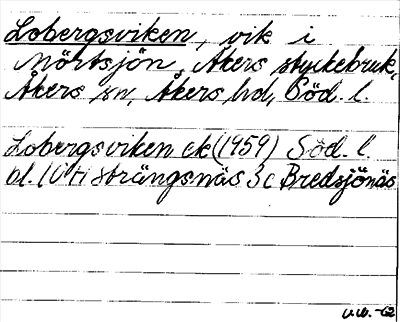 Lobergsviken, vik i
Mörtsjön, Åkers styckebruk,
Åkers sn, Åkers hd, Söd. l.
Lobergsviken ek (1959) Söd. l.
bl. 10 H Strängsnäs 3c Bredsjönäs
U.W. -62